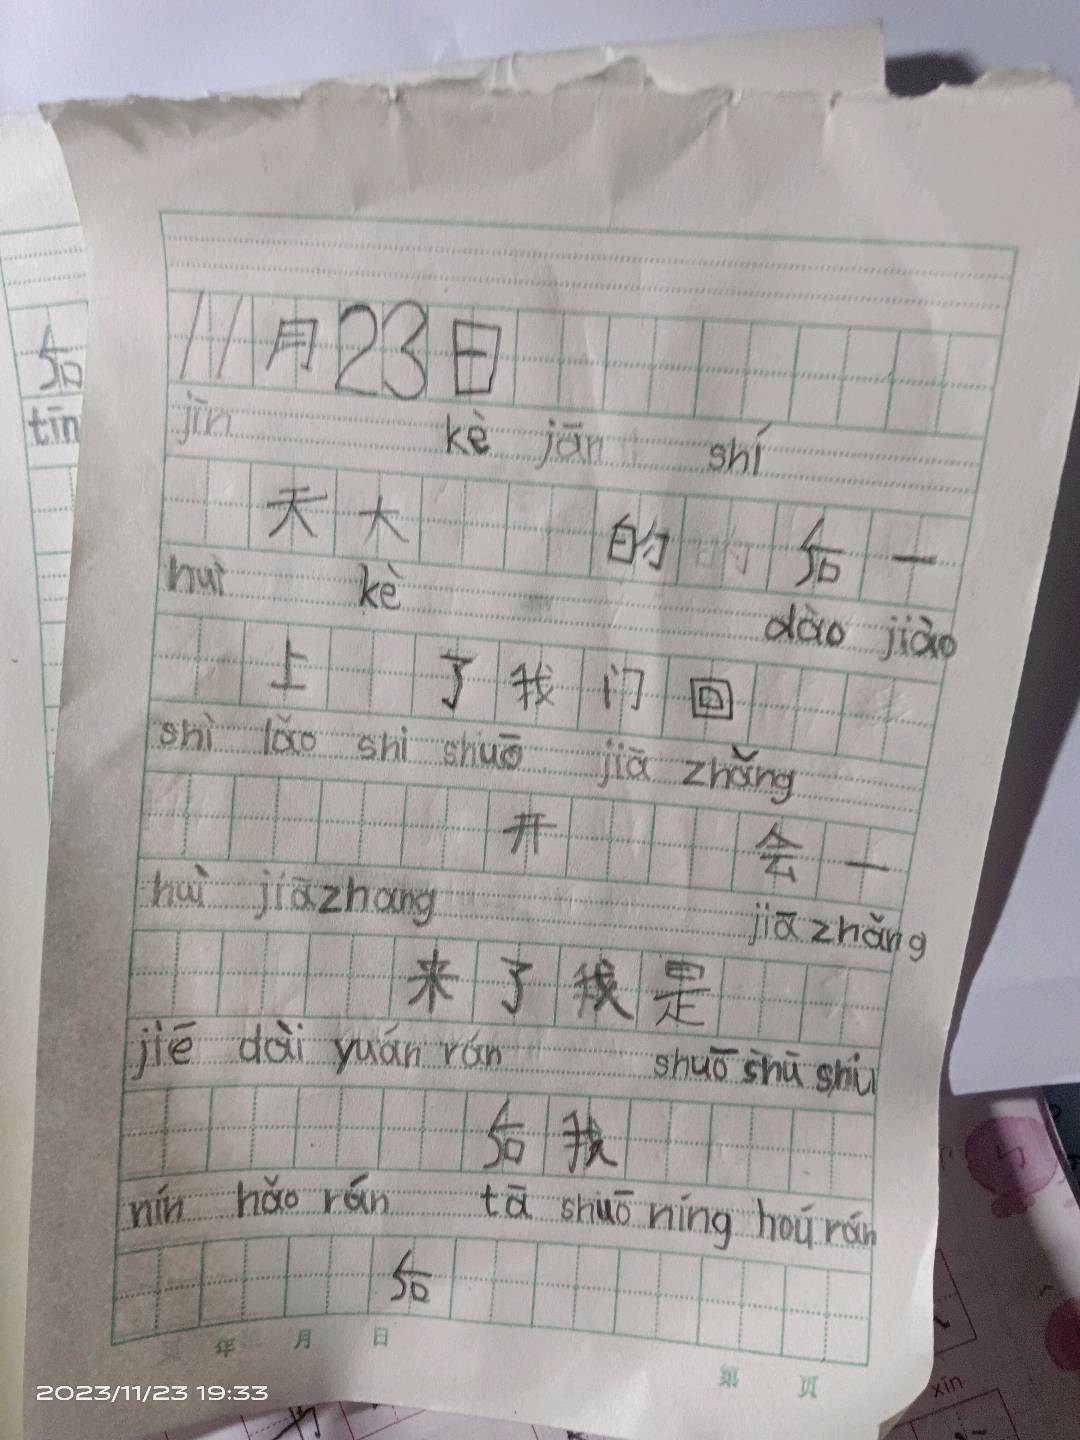 11月23日
jīn kè jān shí
天大 的 后一
huì kè dào jiào
上 了我门回
shì lǎo shi shuō jiā zhǎng
开 会一
huì jiāzhang jiā zhǎng
来了我是
jiē dài yuán rán shuō shū shu
后我
nín hǎo rán tā shuō níng hoú rán
后
年 月 日
第 页
2023/11/23 19:33
后
tīn
xīn